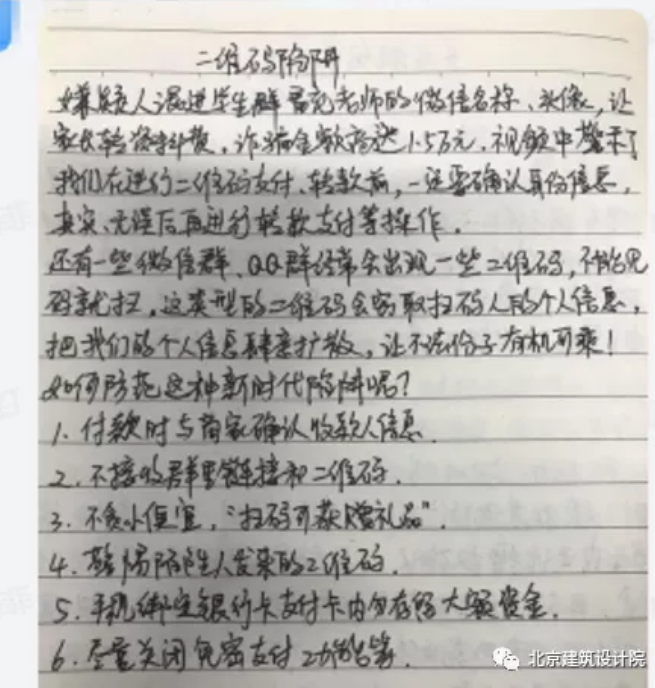 二维码陷阱
嫌疑人混进学生群冒充老师的微信名称、头像,让
家长转资料费,诈骗金额高达1.5万元,视频中警示了
我们在进行二维码支付、转款前,一定要确认身份信息,
真实、无误后再进行转款支付等操作.
还有一些微信群、QQ群经常会出现一些二维码,不能见
码就扫,这类型的二维码会窃取扫码人的个人信息,
把我们的个人信息肆意扩散,让不法份子有机可乘!
如何防范这种新时代陷阱呢?
1. 付款时与商家确认收款人信息.
2. 不接收群里链接和二维码.
3. 不贪小便宜,“扫码可获赠礼品”.
4. 警惕陌生人发来的二维码.
5. 手机绑定银行卡支付卡内勿存留大额资金.
6. 尽量关闭免密支付功能等.
北京建筑设计院